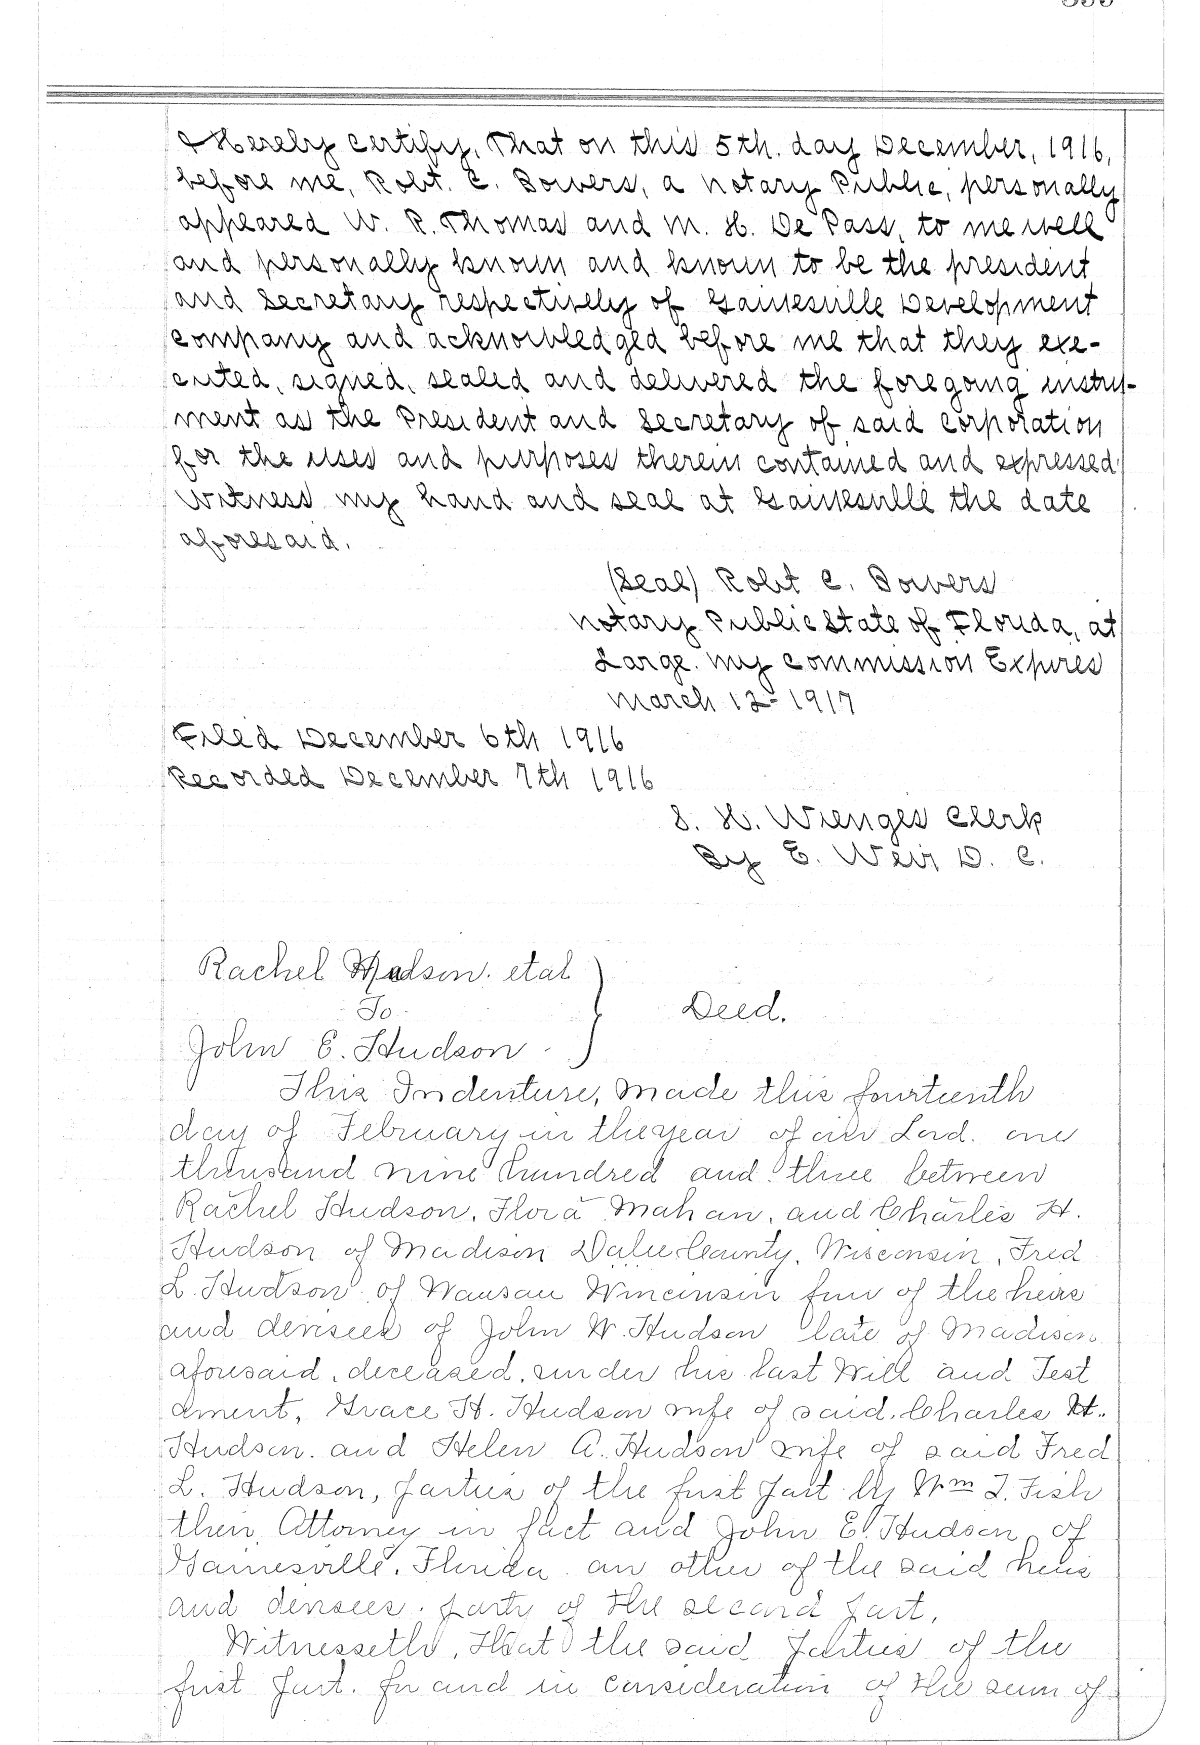 I Hereby certify, That on this 5th. day December, 1916,
before me, Robt. C. Bowers, a Notary Public, personally
appeared W. R. Thomas and M. H. De Pass, to me well
and personally known and known to be the president
and Secretary respectively of Gainesville Development
Company and acknowledged before me that they exe-
cuted, signed, sealed and delivered the foregoing instru-
ment as the President and Secretary of said Corporation
for the uses and purposes therein contained and expressed
Witness my hand and seal at Gainesville the date
aforesaid.
(Seal) Robt C. Bowers
Notary Public State of Florida, at
Large. My Commission Expires
March 12- 1917
Filed December 6th 1916
Recorded December 7th 1916
S. H. Wienges Clerk
By E. Weir D. C.
Rachel Hudson. etal
To
John E. Hudson.
Deed.
This Indenture, Made this fourteenth
day of February in the year of our Lord. one
thousand nine hundred and three between
Rachel Hudson, Flora Mahan, and Charles H.
Hudson of Madison Dane County, Wisconsin, Fred
L. Hudson of Wausau Wincinsin four of the heirs
and devisees of John W. Hudson late of Madison
aforesaid, deceased, under his last Will and Test
ament, Grace H. Hudson wife of said Charles H.
Hudson. and Helen A. Hudson wife of said Fred
L. Hudson, parties of the first part by Wm T. Fish
their Attorney in fact and John E. Hudson of
Gainesville, Florida an other of the said heirs
and devisees. party of the second part,
Witnesseth, That the said parties of the
first part. for and in consideration of the sum of